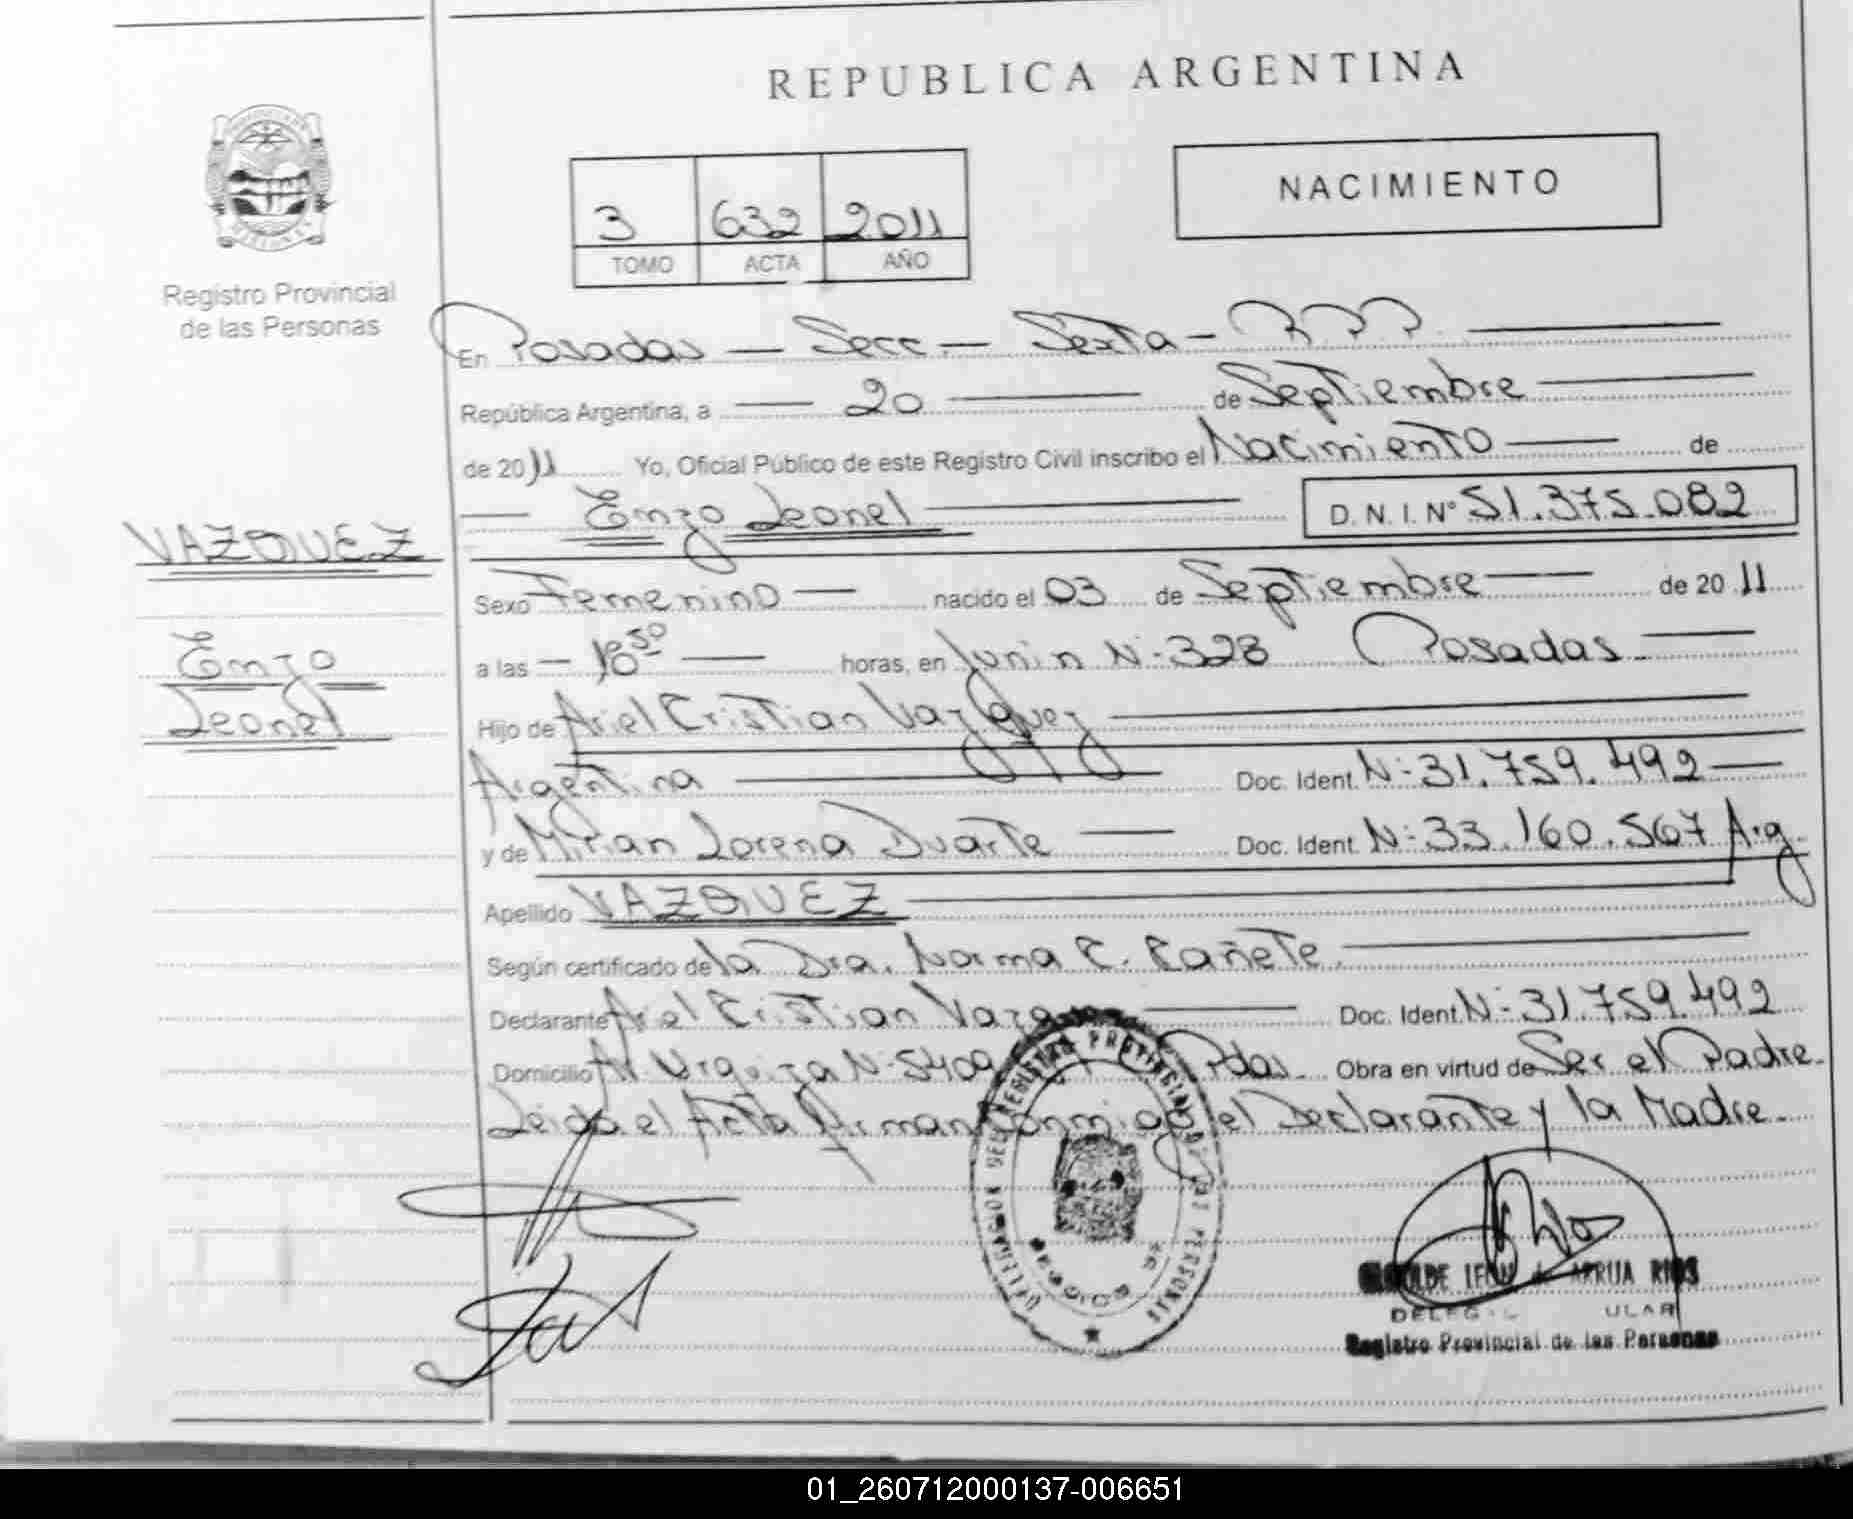 REPUBLICA ARGENTINA
NACIMIENTO
3 632 2011
TOMO ACTA AÑO
PROVINCIA DE
MISIONES
Registro Provincial
de las Personas
En Posadas — Secc. — Sexta — R P P.
República Argentina, a — 20 — de Septiembre
de 2011 Yo, Oficial Público de este Registro Civil inscribo el Nacimiento — de
Enzo Leonel D. N. I. N° 51.375.082
VAZQUEZ
Enzo
Leonel
Sexo Femenino — nacido el 03 de Septiembre — de 20 11
a las — 18 50 — horas, en Junin N° 328 Posadas
Hijo de Ariel Cristian Vazquez
Argentina — Doc. Ident. N° 31.759.492 —
y de Mirian Lorena Duarte — Doc. Ident. N° 33.160.567 Arg.
Apellido VAZQUEZ
Según certificado de la Dra. Norma C. Cañete.
Declarante Ariel Cristian — Doc. Ident. N° 31.759.492
Domicilio Av Urquiza N° 5409 Pdas. Obra en virtud de Ser el Padre.
Leida el Acta firman Conmigo el Declarante y la Madre.
DELEGACION DEL REGISTRO PROVINCIAL DE LAS PERSONAS
ARRUA RIOS
Registro Provincial de las Personas
01_260712000137-006651